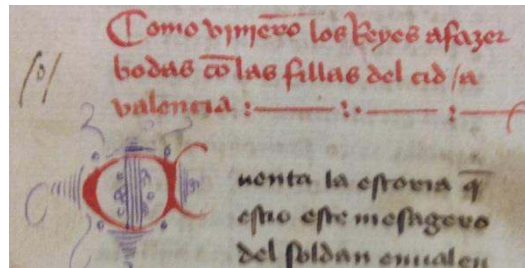 Como vinierõ los Reyes a fazer
bodas cõ las fillas del cid / a
valencia :— :· — : —
C
uenta la estoria q̃
estio este mesagero
del soldan en valen